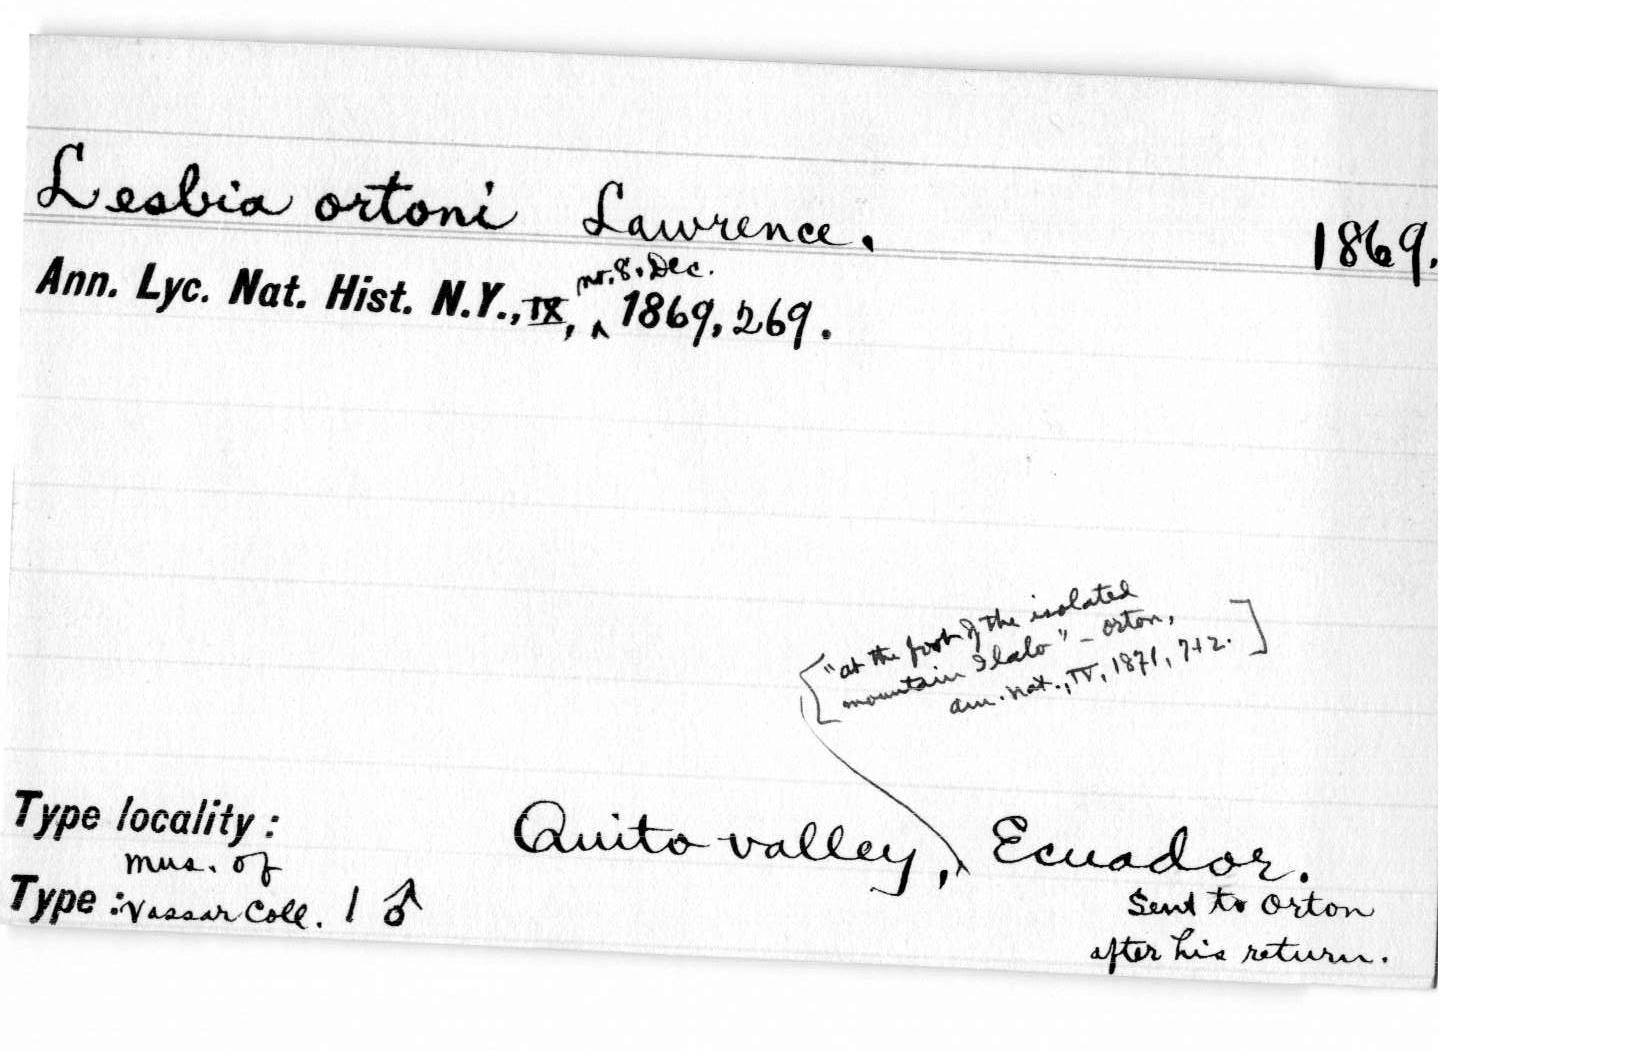 Lesbia ortoni Lawrence. 1869.
no. 8. Dec.
Ann. Lyc. Nat. Hist. N.Y., IX, ^ 1869, 269.
["at the foot of the isolated
mountain Ilalo" – Orton,
Am. Nat., IV, 1871, 712.]
Type locality: Quito valley, Ecuador.
Mus. of
Type: Vassar Coll. 1 ♂
Sent to Orton
after his return.